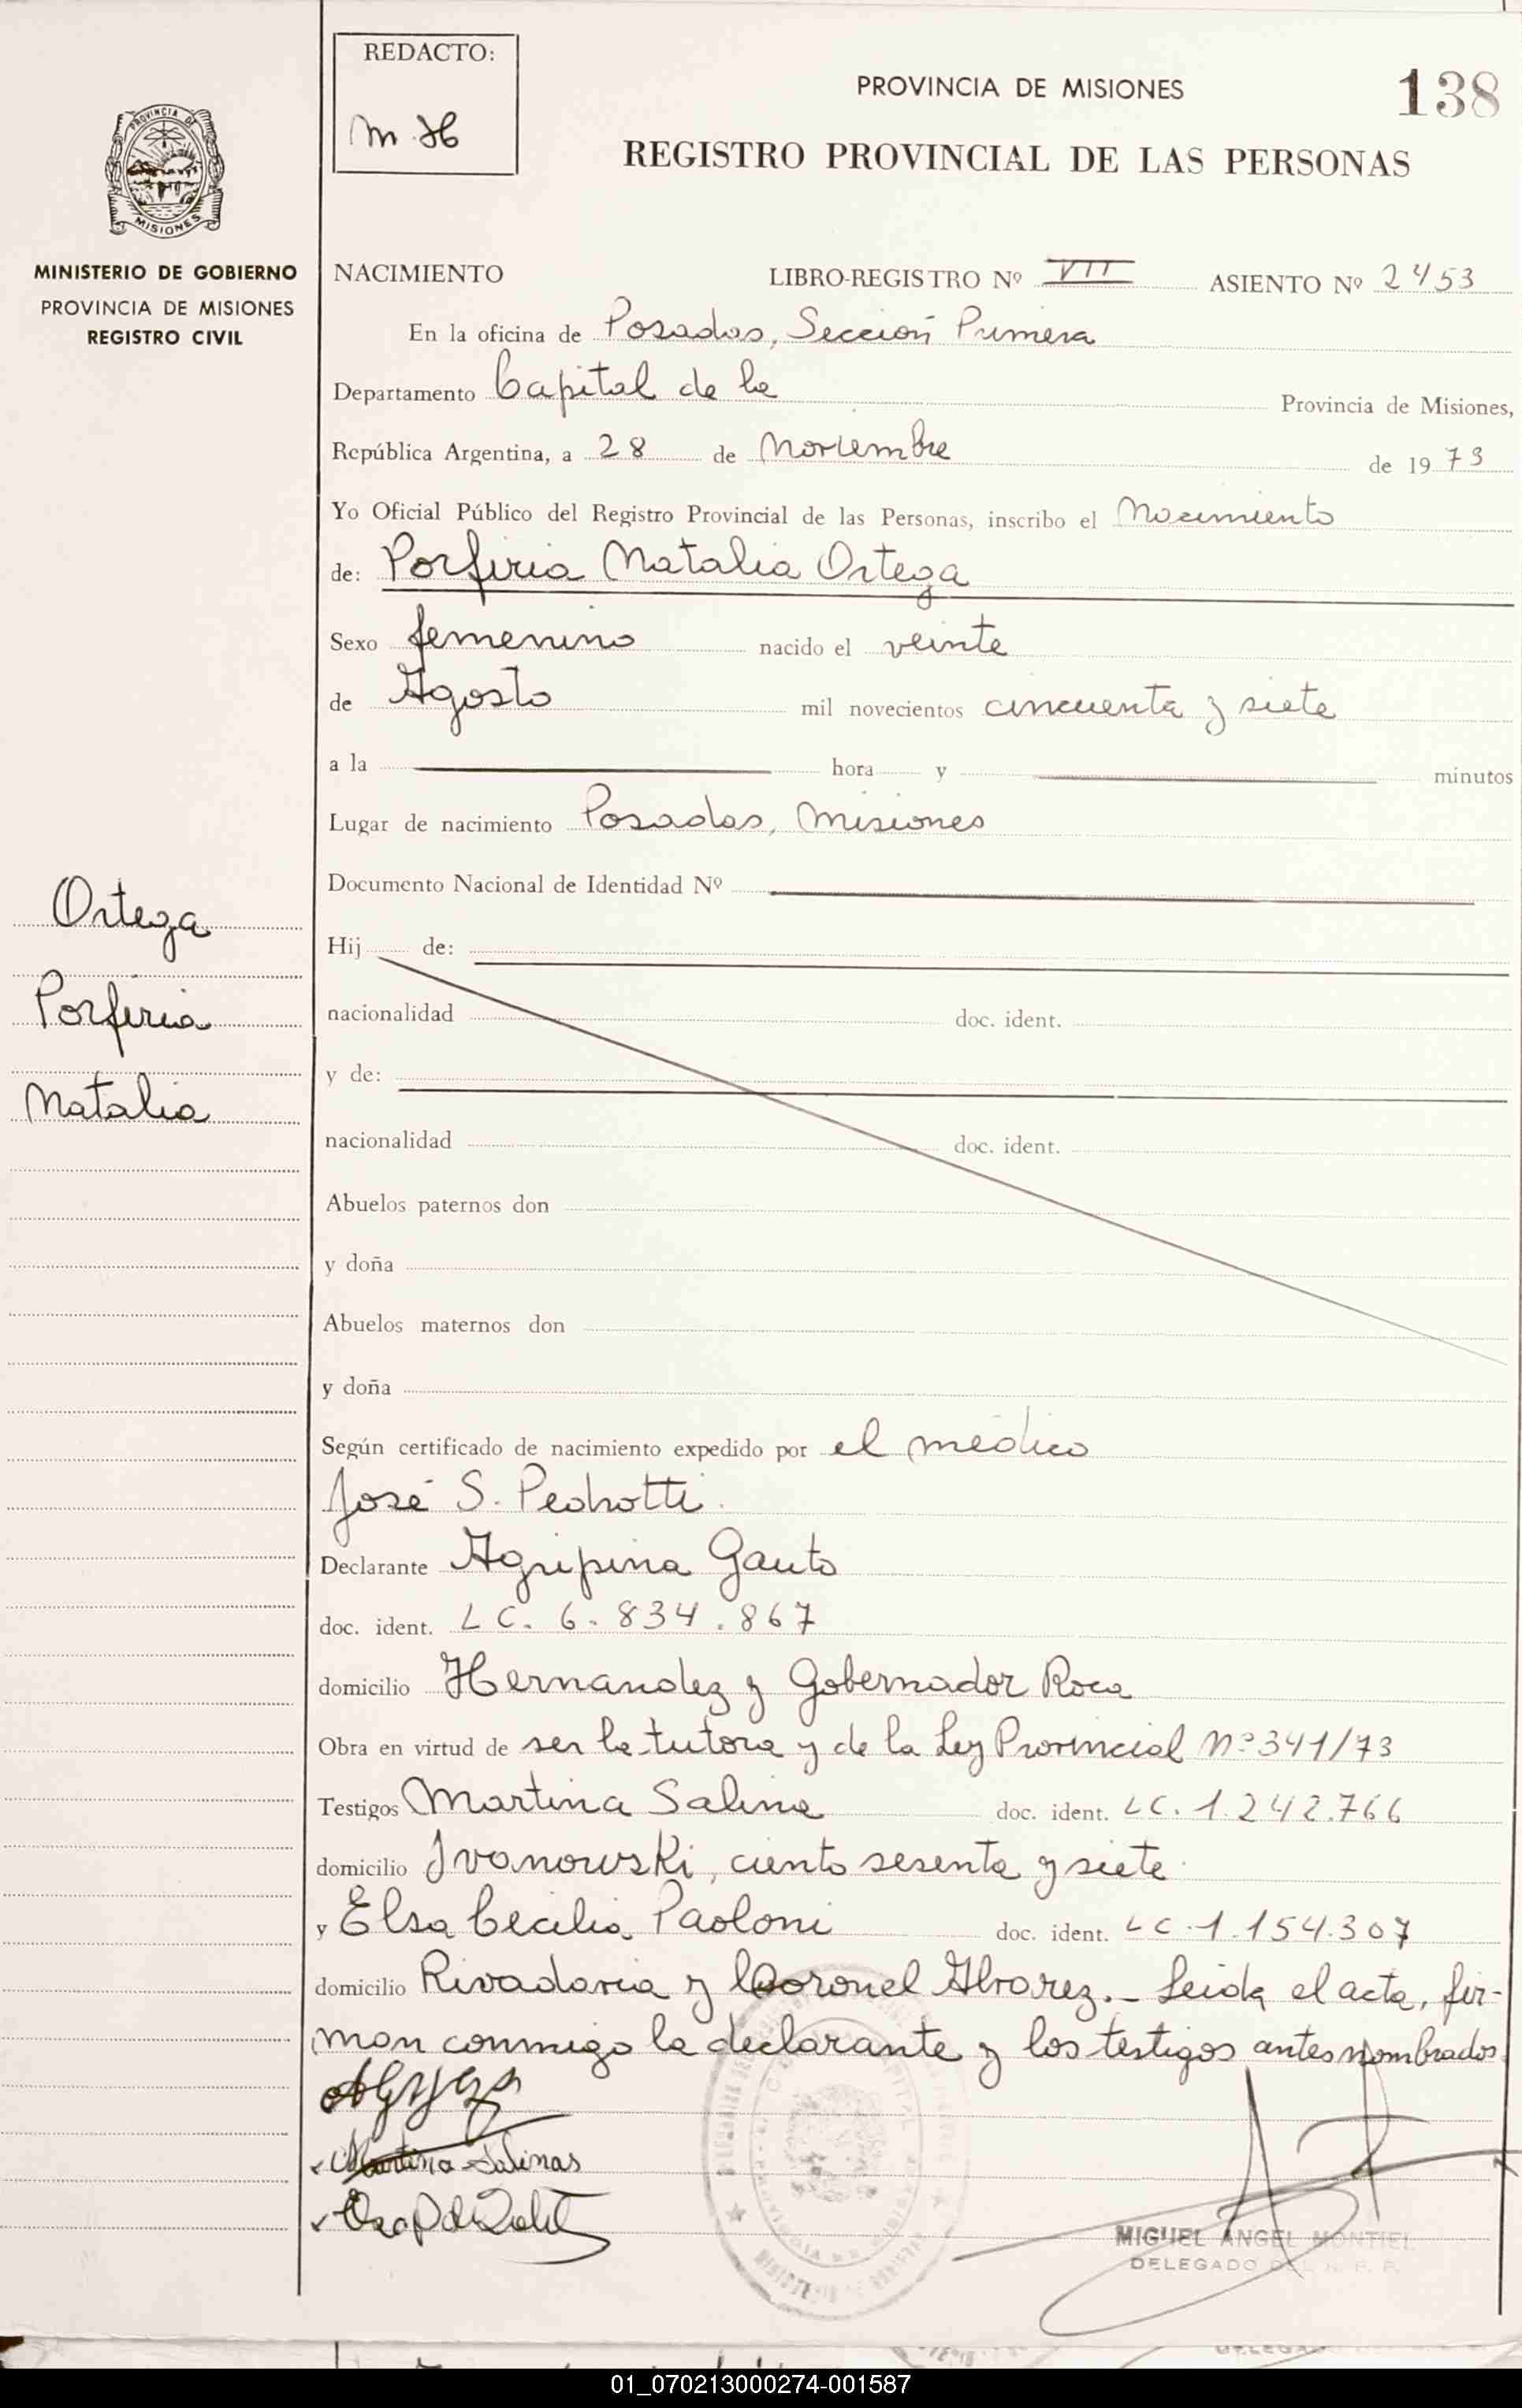 REDACTO:
138
PROVINCIA DE MISIONES
REGISTRO PROVINCIAL DE LAS PERSONAS
PROVINCIA DE
MISIONES
MINISTERIO DE GOBIERNO
PROVINCIA DE MISIONES
REGISTRO CIVIL
NACIMIENTO LIBRO-REGISTRO Nº VII ASIENTO Nº 2453
En la oficina de Posadas, Sección Primera
Departamento Capital de la Provincia de Misiones,
República Argentina, a 28 de Noviembre de 1973
Yo Oficial Público del Registro Provincial de las Personas, inscribo el Nacimiento
de: Porfiria Natalia Ortega
Sexo femenino nacido el veinte
de Agosto mil novecientos cincuenta y siete
a la hora y minutos
Lugar de nacimiento Posadas, Misiones
Documento Nacional de Identidad Nº
Ortega
Porfiria
Natalia
Hij de:
nacionalidad doc. ident.
y de:
nacionalidad doc. ident.
Abuelos paternos don
y doña
Abuelos maternos don
y doña
Según certificado de nacimiento expedido por el médico
José S. Pedrotti.
Declarante Agripina Gauto
doc. ident. LC. 6.834.867
domicilio Hernandez y Gobernador Roca
Obra en virtud de ser la tutora y de la Ley Provincial Nº 341/73
Testigos Martina Salina doc. ident. LC. 1.242.766
domicilio Ivanowski, ciento sesenta y siete.
y Elsa Cecilia Paoloni doc. ident. LC. 1.154.307
domicilio Rivadavia y Coronel Alvarez.- Leida el acta, fir-
man conmigo la declarante y los testigos antes nombrados
Martina Salinas
MIGUEL ANGEL MONTIEL
DELEGADO DEL R. P. P.
01_070213000274-001587